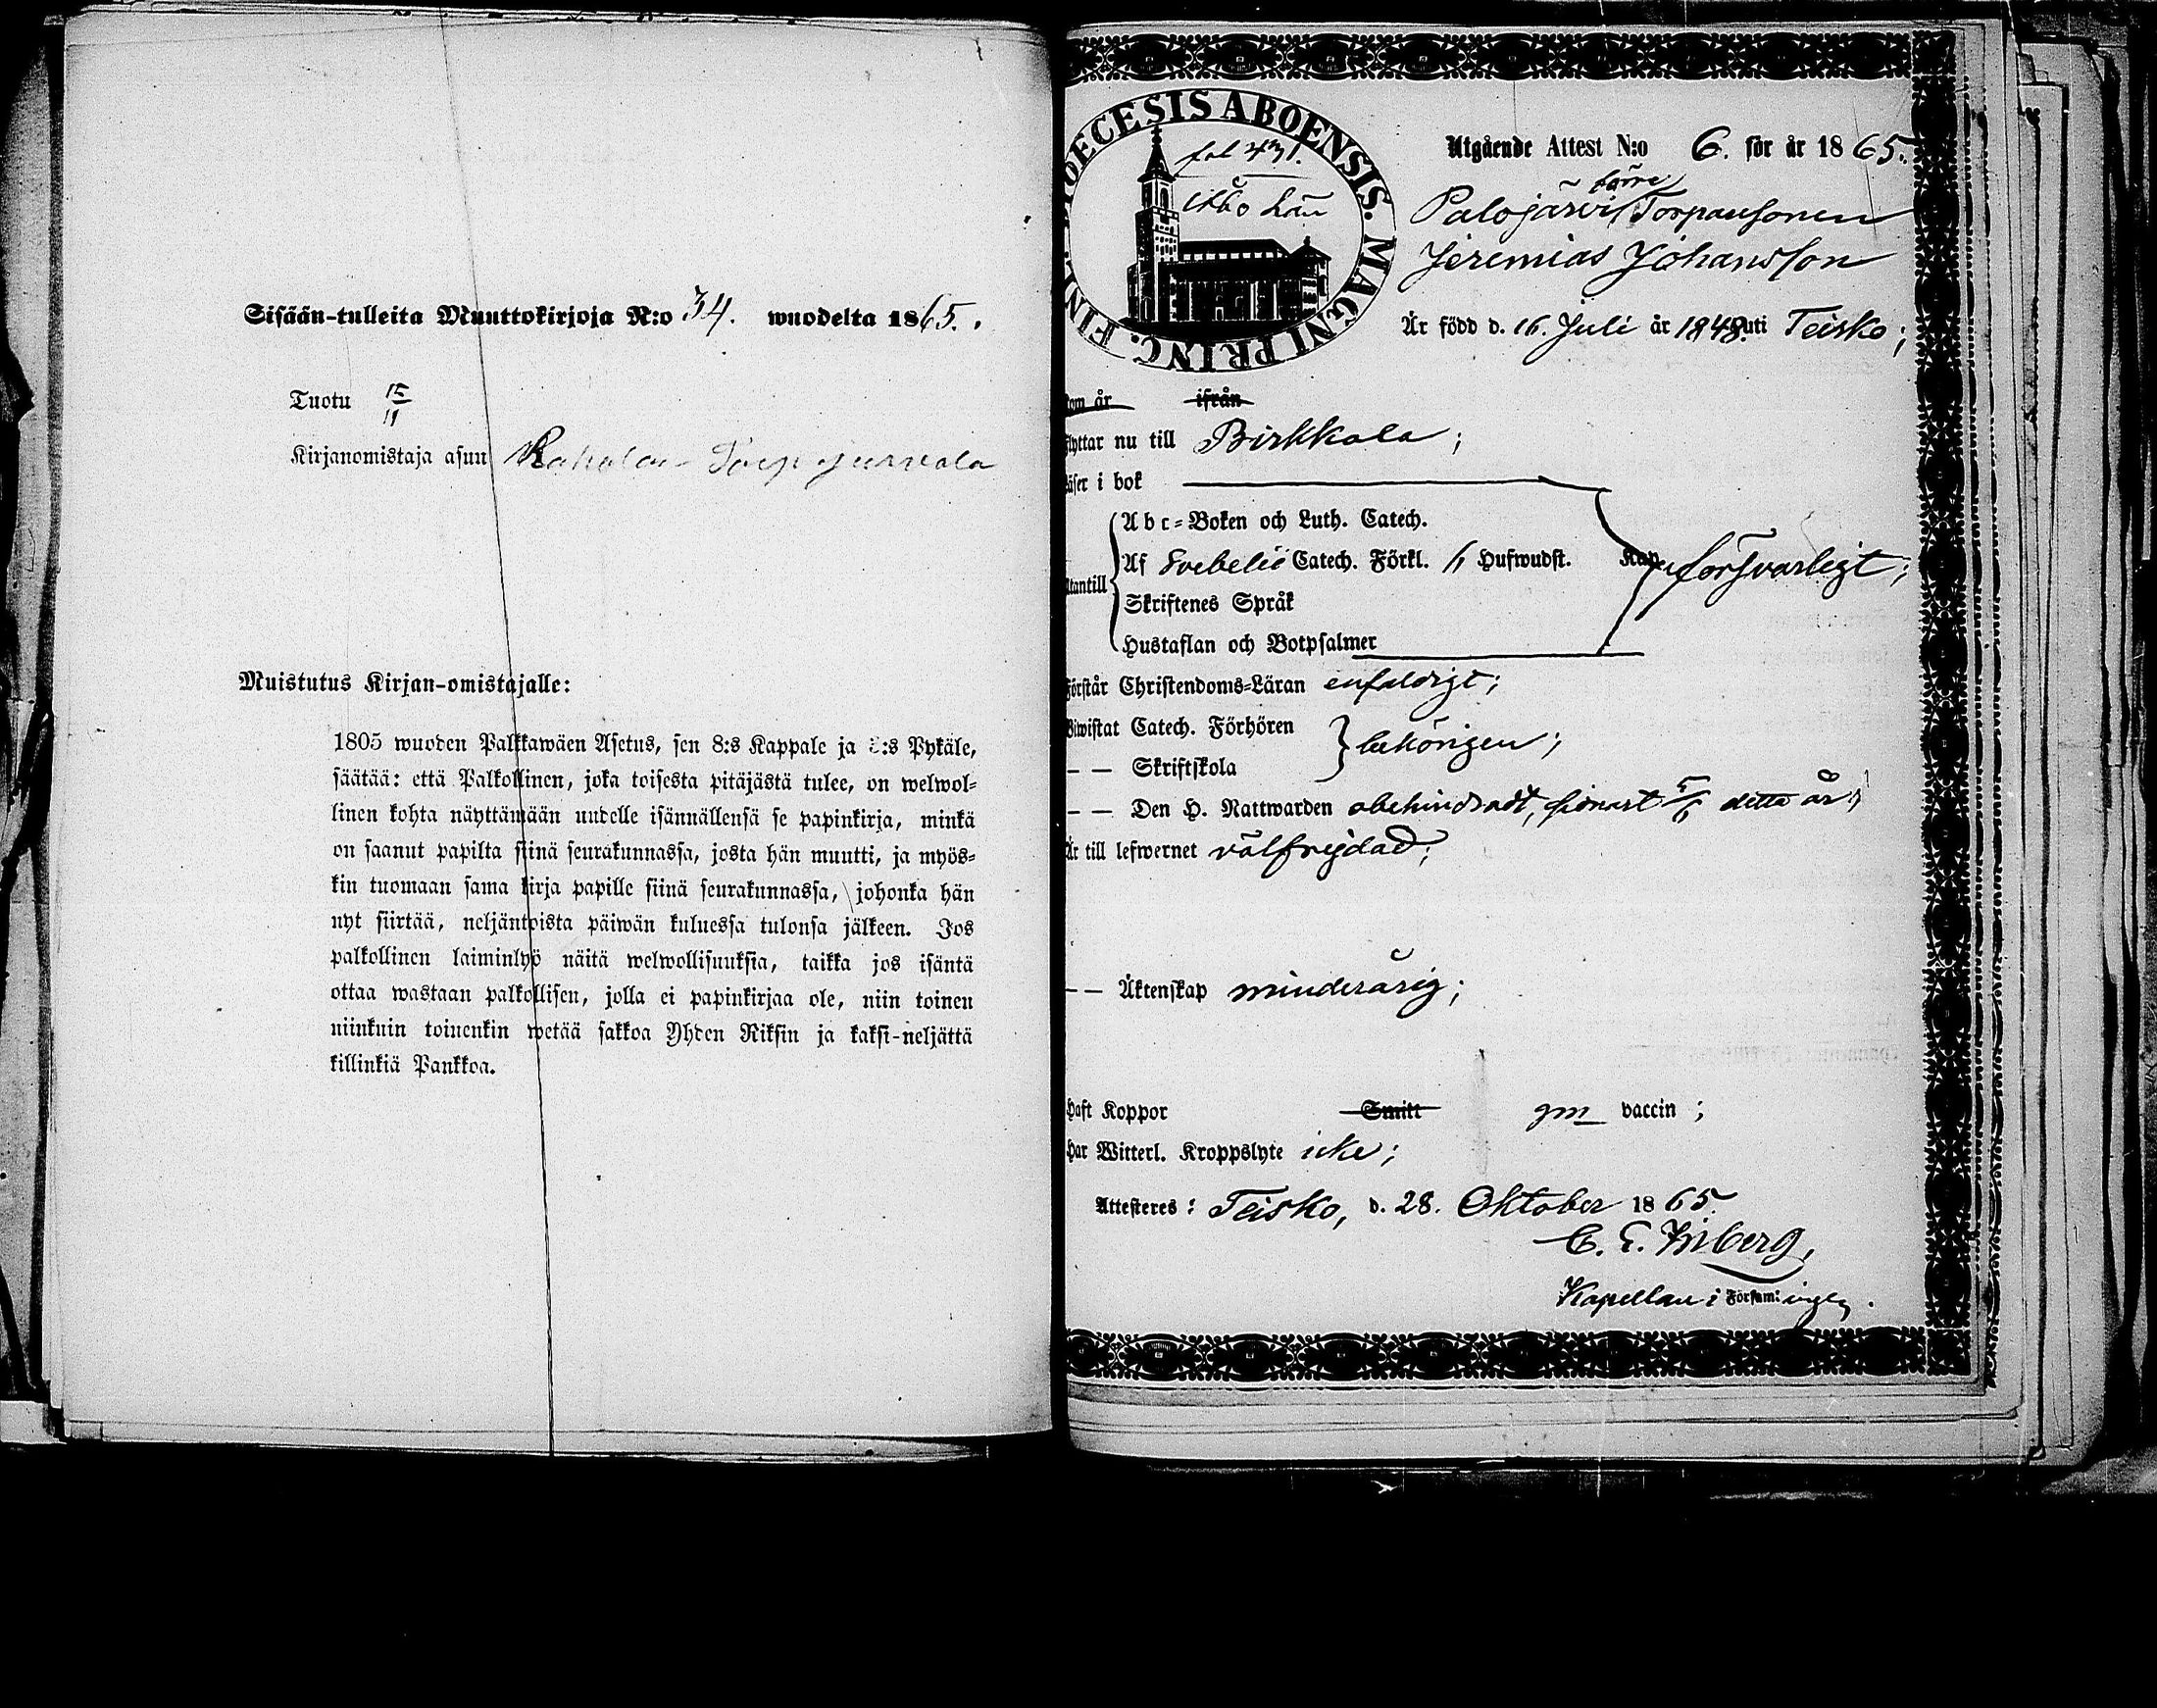 Sisään-tulleita Muuttokirjoja N:o 34. wuodelta 1865.
Tuotu 15/11
Kirjanomistaja asuu Rahola Torp
Muistutus Kirjan-omistajalle:
1805 wuoden Palkkawäen Asetus, sen 8:s Kappale ja :s Pykäle,
säätää: että Palkollinen, joka toisesta pitäjästä tulee, on welwol-
linen kohta näyttämään uudelle isännällensä se papinkirja, minkä
on saanut papilta siinä seurakunnassa, josta hän muutti, ja myös-
kin tuomaan sama kirja papille siinä seurakunnassa, johonka hän
nyt siirtää, neljäntoista päiwän kuluessa tulonsa jälkeen. Jos
palkollinen laiminlyö näitä welwollisuuksia, taikka jos isäntä
ottaa wastaan palkollisen, jolla ei papinkirjaa ole, niin toinen
niinkuin toinenkin wetää sakkoa Yhden Riksin ja kaksi-neljättä
killinkiä Pankkoa.
DIOECESIS ABOENSIS. MAGNI PRINC. FINL.
fol 431.
Åbo Län
Utgående Attest N:o 6. för år 1865.
förre
Palojärvi Torparesonen
Jeremias Johansson
Är född d. 16. Juli år 1848. uti Teisko;
som år ifrån
flyttar nu till Birkkala;
läser i bok
Utantill
Abc-Boken och Luth. Catech.
Af Svebelii Catech. Förkl. Hufwudst. Kap. försvarligt;
Skriftenes Språk
Hustaflan och Botpsalmer
Förstår Christendoms-Läran enfaldigt;
Biwistat Catech. Förhören
behörigen;
— — Skriftskola
— — Den H. Nattwarden obehindradt, sednast 5/6 detta år;
Är till lefwernet välfrejdad;
— — Äktenskap minderårig;
Haft Koppor Smitt gm vaccin;
Har Witterl. Kroppslyte icke;
Attesteres: Teisko, d. 28. Oktober 1865.
Kapellan i Församlingen.